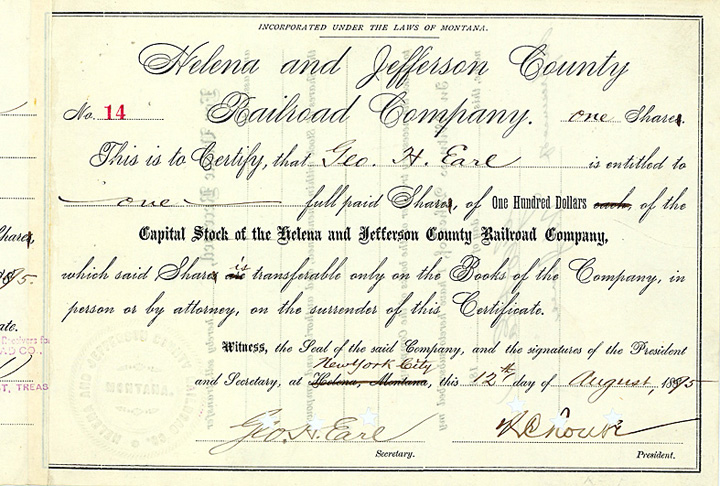 INCORPORATED UNDER THE LAWS OF MONTANA.
Helena and Jefferson County
No. 14 Railroad Company. one Share
This is to Certify, that Geo. H. Earl is entitled to
one full paid Share, of One Hundred Dollars each, of the
Capital Stock of the Helena and Jefferson County Railroad Company,
which said Share is transferable only on the Books of the Company, in
person or by attorney, on the surrender of this Certificate.
Witness, the Seal of the said Company, and the signatures of the President
New York City
and Secretary, at Helena, Montana, this 12th day of August, 1895
Geo. H. Earl
Secretary. President.
Share
95.
ate.
Receivers for
AD CO.,
ST, TREAS
MONTANA.